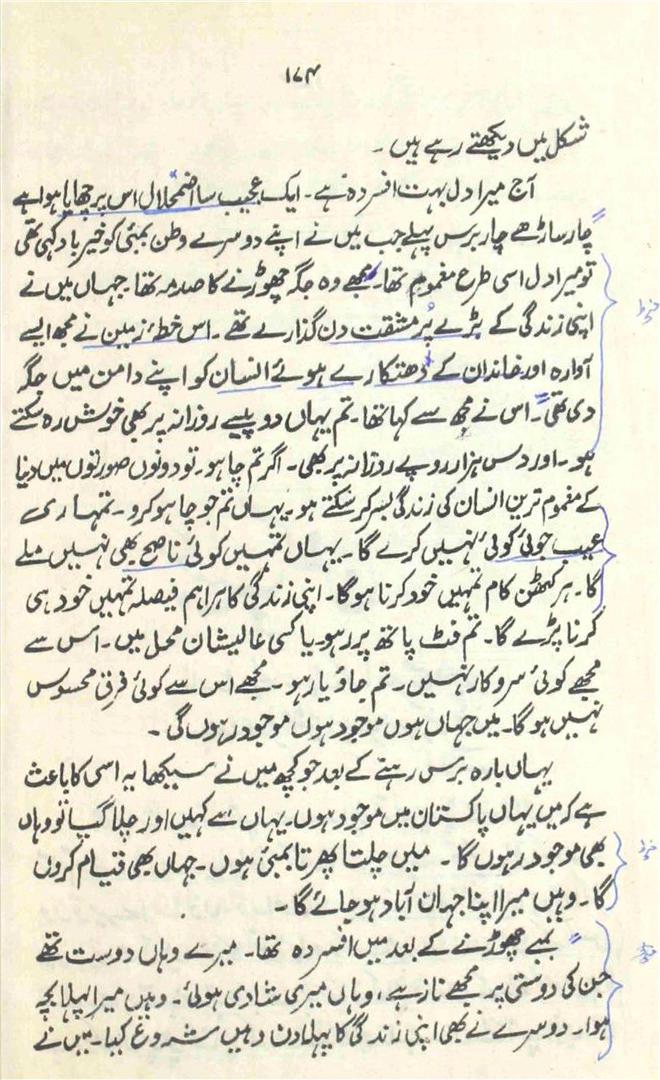 ۱۷۴
شکل میں دیکھتے رہے ہیں ۔
آج میرا دل بہت افسردہ ہے ۔ ایک عجیب سا اضمحلال اس پر چھایا ہوا ہے
چار ساڑھے چار برس پہلے جب میں نے اپنے دوسرے وطن بمبئی کو خیر باد کہی تھی
تو میرا دل اسی طرح مغموم تھا۔ مجھے وہ جگہ چھوڑنے کا صدمہ تھا۔ جہاں میں نے
اپنی زندگی کے بڑے پُر مشقت دن گذارے تھے ۔ اس خطۂ زمین نے مجھ ایسے
آوارہ اور خاندان کے دھتکارے ہوئے انسان کو اپنے دامن میں جگہ
دی تھی۔ اس نے مجھ سے کہا تھا۔ تم یہاں دو پیسے روزانہ پر بھی خوش رہ سکتے
ہو ۔ اور دس ہزار روپے روزانہ پر بھی ۔ اگر تم چاہو ۔ تو دونوں صورتوں میں دنیا
کے مغموم ترین انسان کی زندگی بسر کر سکتے ہو ۔ یہاں تم جو چاہو کرو ۔ تمہاری
عیب جوئی کوئی نہیں کرے گا ۔ یہاں تمہیں کوئی ناصح بھی نہیں ملے
گا ۔ ہر کٹھن کام تمہیں خود کرنا ہوگا ۔ اپنی زندگی کا ہر اہم فیصلہ تمہیں خود ہی
کرنا پڑے گا ۔ تم فٹ پاتھ پر رہو یا کسی عالیشان محل میں ۔ اس سے
مجھے کوئی سروکار نہیں ۔ تم جاؤ یا رہو ۔ مجھے اس سے کوئی فرق محسوس
نہیں ہوگا ۔ میں جہاں ہوں موجود ہوں موجود رہوں گی ۔
یہاں بارہ برس رہنے کے بعد جو کچھ میں نے سیکھا یہ اسی کا باعث
ہے کہ میں یہاں پاکستان میں موجود ہوں ۔ یہاں سے کہیں اور چلا گیا تو وہاں
بھی موجود رہوں گا ۔ میں چلتا پھرتا بمبئی ہوں ۔ جہاں بھی قیام کروں
گا ۔ وہیں میرا اپنا جہان آباد ہو جائے گا ۔
بمبے چھوڑنے کے بعد میں افسردہ تھا ۔ میرے وہاں دوست تھے
جن کی دوستی پر مجھے ناز ہے ، وہاں میری شادی ہوئی ۔ وہیں میرا پہلا بچہ
ہوا ۔ دوسرے نے بھی اپنی زندگی کا پہلا دن وہیں شروع کیا ۔ میں نے